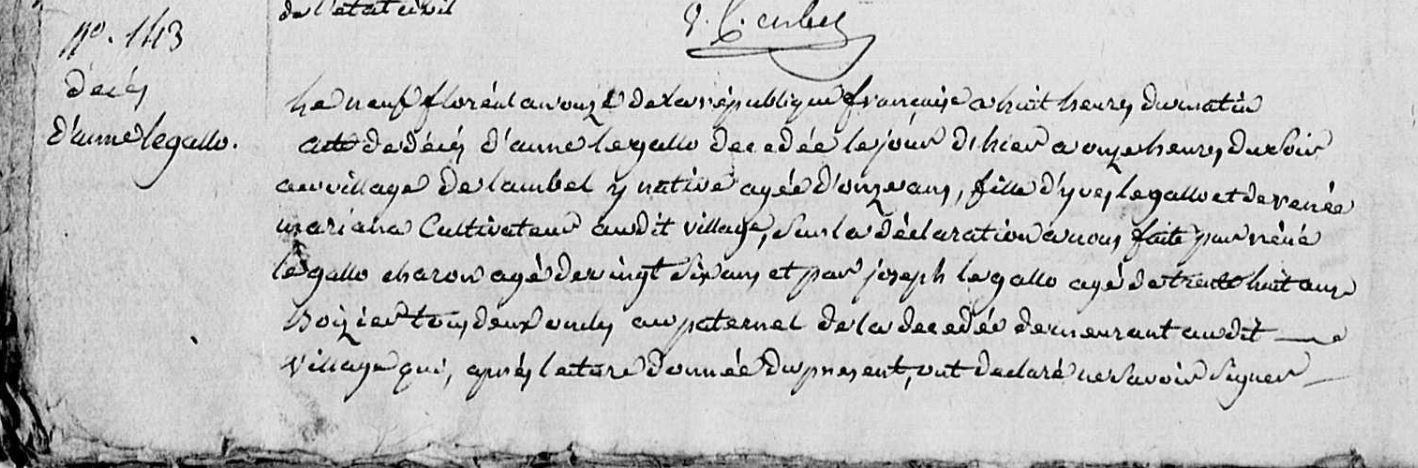 de l'état civil
n°. 143
décés
d'anne le gallo.
Le neuf floréal an onze de la république française a huit heures du matin
acte de décés d'anne le gallo decedée le jour d'hier a onze heures du soir
au village de lambel y native agée d'onze ans, fille d'yves le gallo et de renée
cultivateur audit village, sur la déclaration a nous faite par réné
le gallo charon agé de vingt six ans et par joseph le gallo agé de trente huit ans
tous deux oncles au paternel de la decedée demeurant audit
village qui, aprés lecture donnée du present, ont declaré ne savoir signer